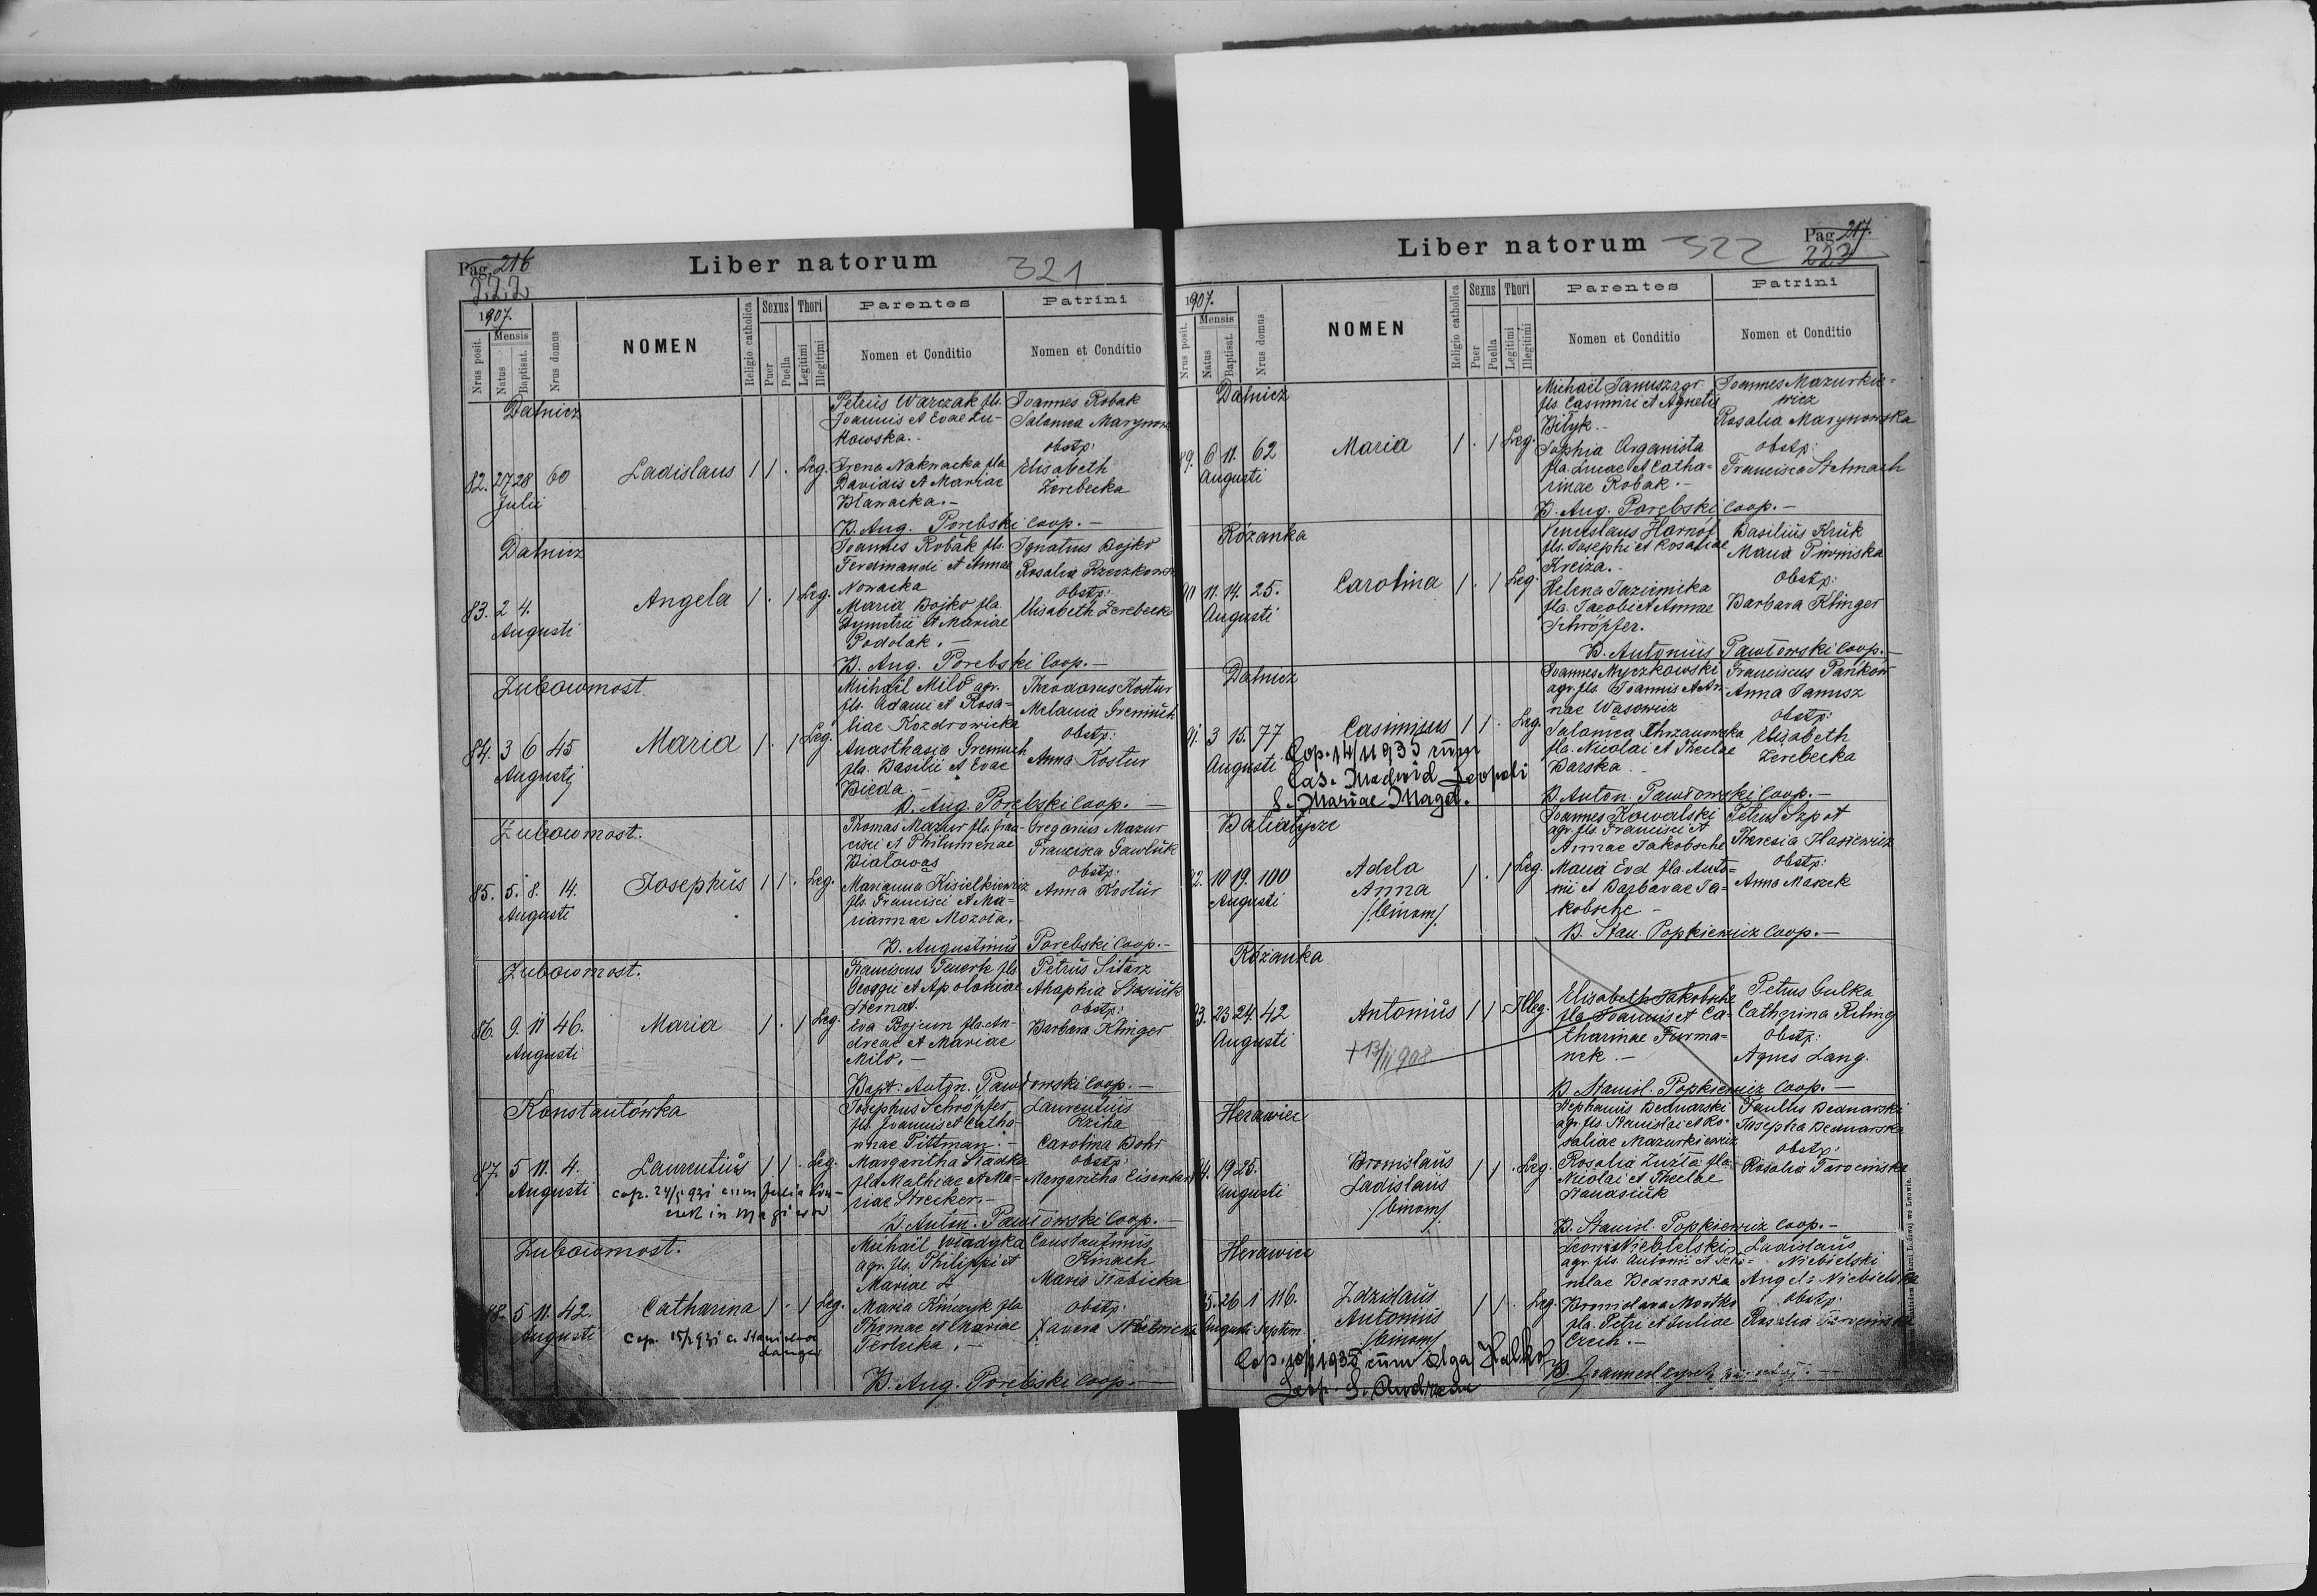 Pag. 216
222
Liber natorum
321
1907.
Nrus posit.
Mensis
Natus
Baptisat.
Nrus domus
NOMEN
Religio catholica
Sexus
Puer
Puella
Thori
Legitimi
Illegitimi
Parentes
Nomen et Conditio
Patrini
Nomen et Conditio
Datnicz
82. 27 28 60 Ladislaus 1 1 . Leg.
Julii
Petrus Warczak fls.
Joannis et Evae Lu-
kowska.-
Irena Nakwacka fla
Davidis et Mariae
Bławacka.-
Joannes Robak
Salomea Marynow
obstp:
Elisabeth
Zerebecka
B. Aug. Porebski Coop.-
Datnicz
83. 2 4. Angela 1 . 1 Leg.
Augusti
Joannes Robak fls.
Ferdinandi et Annae
Nowacka
Maria Bojko fla
Dymetrii et Mariae
Podolak.-
Ignatius Bojko
Rosalia
obstp:
Elisabeth Zerebecka
B. Aug. Porebski Coop.-
Zubowmost.
84. 3 6 45 Maria 1 . 1 Leg.
Augusti
Michaël Milo agr.
fls. Adami et Rosa-
liae Kozdrowicka
Anasthasia Gremiuch
fla. Basilii et Evae
Bieda.-
Theodorus Kostur
Melania Gremiuch
obstp:
Anna Kostur
B. Aug. Porebski Coop.-
Zubowmost.
85. 5. 8. 14. Josephus 1 1 . Leg.
Augusti
Thomas Mazur fls. Fran-
cisci et Philumenae
Białowąs
Marianna Kisielkiewicz
fls. Francisci et Ma-
riannae Mozoła.-
Gregorius Mazur
Francisca Gawluk
obstp:
Anna Kostur
B. Augustinus Porebski Coop.-
Zubowmost.
86. 9. 11 46. Maria 1 . 1 Leg.
Augusti
Franciscus fls
Georgii et Apoloniae
Eva Bojcun fla. An-
dreae et Mariae
Milo.-
Petrus Sitarz
Ahaphia Stasiuk
obstp:
Barbara Klinger
Bapt: Anton. Pawłowski Coop.-
Konstantówka
87. 5 11. 4. Laurentius 1 1 . Leg.
Augusti
cop. 24/5 931 cum Julia
Josephus Schröpfer
fls. Joannis et Catha-
rinae Pittman.-
Margaritha Stadtka
fla Mathiae et Ma-
riae Strecker.-
Laurentius
Rziha
Carolina Bohr
obstp:
Margaritha
B. Anton. Pawłowski Coop.-
Zubowmost.
88. 5 11. 42 Catharina 1 . 1 Leg.
Augusti
Cop. 15/2 931 c. Stanislao
Michaël Władyka
agr. fls. Philippi et
Mariae
Maria Kinczyk fla
Thomae et Mariae
Terlecka.-
Constantinus
Kinach
Maria
obstp:
Xavera
B. Aug. Porębski Coop.-
Liber natorum
322
Pag. 217.
223
1907.
Nrus posit.
Mensis
Natus
Baptisat.
Nrus domus
NOMEN
Religio catholica
Sexus
Puer
Puella
Thori
Legitimi
Illegitimi
Parentes
Nomen et Conditio
Patrini
Nomen et Conditio
Datnicz
89. 6 11. 62 Maria 1 . 1 Leg.
Augusti
Michaël Janusz agr.
fls. Casimiri et Agnetis
Biłyk.-
Sophia Organista
fla. Lucae et Catha-
rinae Robak.-
Joannes Mazurkie-
wicz
Rosalia Marynowska
obstp:
Francisca Stelmach
B. Aug. Porebski Coop.-
Rózanka
90 11. 14. 25. Carolina 1 . 1 Leg.
Augusti
Venceslaus
fls. Josephi et Rosaliae
Kreiza.-
Helena
fla. Jacobi et Annae
Schröpfer.
Basilius Kruk
Maria
obstp:
Barbara Klinger
B. Antonius Pawłowski Coop.-
Datnicz
91. 3 15. 77 Casimirus 1 1 . Leg.
Augusti
Cop. 14/11 935 cum
Cas. Leopoli
S. Mariae Magd.
Joannes Myczkowski
agr. fls. Joannis et An-
nae Wasowicz
Salomea Chrzanowska
fla. Nicolai et Theclae
Barska.-
Franciscus Pankow
Anna Janusz
obstp:
Elisabeth
Zerebecka
B. Anton. Pawłowski Coop.-
Batiatycze
92. 10 19. 100 Adela 1 . 1 Leg.
Augusti
Anna
/binom/
Joannes Kowalski
agr. fls. Francisci et
Annae Jakobsche
Maria Evd fla. Anto-
nii et Barbarae Ja-
kobsche-
Petrus Szpot
Theresia
obstp:
Anna Maszek
B. Stan. Popkiewicz Coop.-
Rózanka
93. 23 24 42 Antonius 1 1 Illeg.
Augusti
+ 13/II 908
Elisabeth Jakobsche
fla Joannis et Ca-
tharinae Furma-
nek.-
Petrus Gulka
Catherina Riling
obstp:
Agnes Lang.
B. Stanisl. Popkiewicz Coop.-
Herawiec
94. 19 25. Bronislaus 1 1 . Leg.
Augusti
Ladislaus
/binom/
Stephanus Bednarski
agr. fls. Stanislai et Ro-
saliae Mazurkiewicz
Rosalia fla.
Nicolai et Theclae
Paulus Bednarski
Josepha Bednarska
obstp:
Rosalia Tarocinska
B. Stanisl. Popkiewicz Coop.-
Herawiec
95. 26 1 116. Zdzislaus 1 1 . Leg.
Augusti Septem.
Antonius
/binom/
Cop. 10/2 1935 cum Olga
Leop. S. Andreae
Leonis Niebielski
agr. fls. Antonii et
Bednarska
Bronislava Mostka
fla. Petri et Juliae
Czech.-
Ladislaus
Niebielski
Angela Niebielska
obstp:
Rosalia Tarocinska